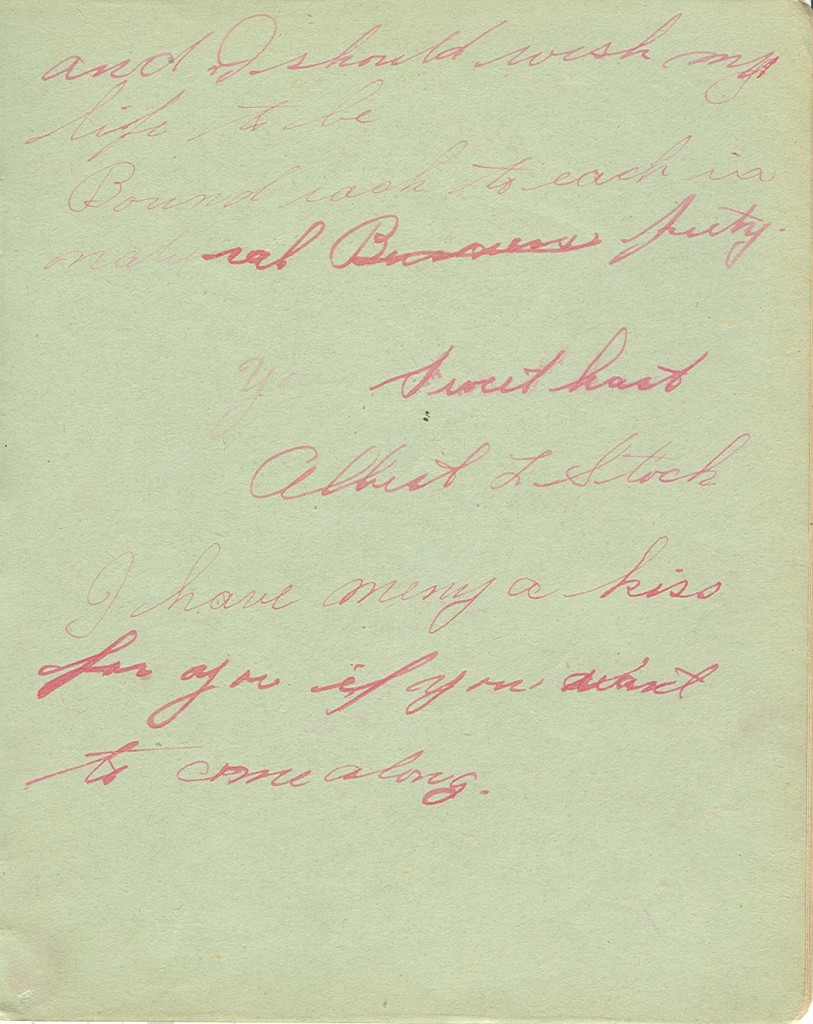 and I should wish my
life to be
Bound each to each in a
natural Busness piety.
Yo Sweet hart
Albert L Stock
I have meny a kiss
for you if you want
to come along.